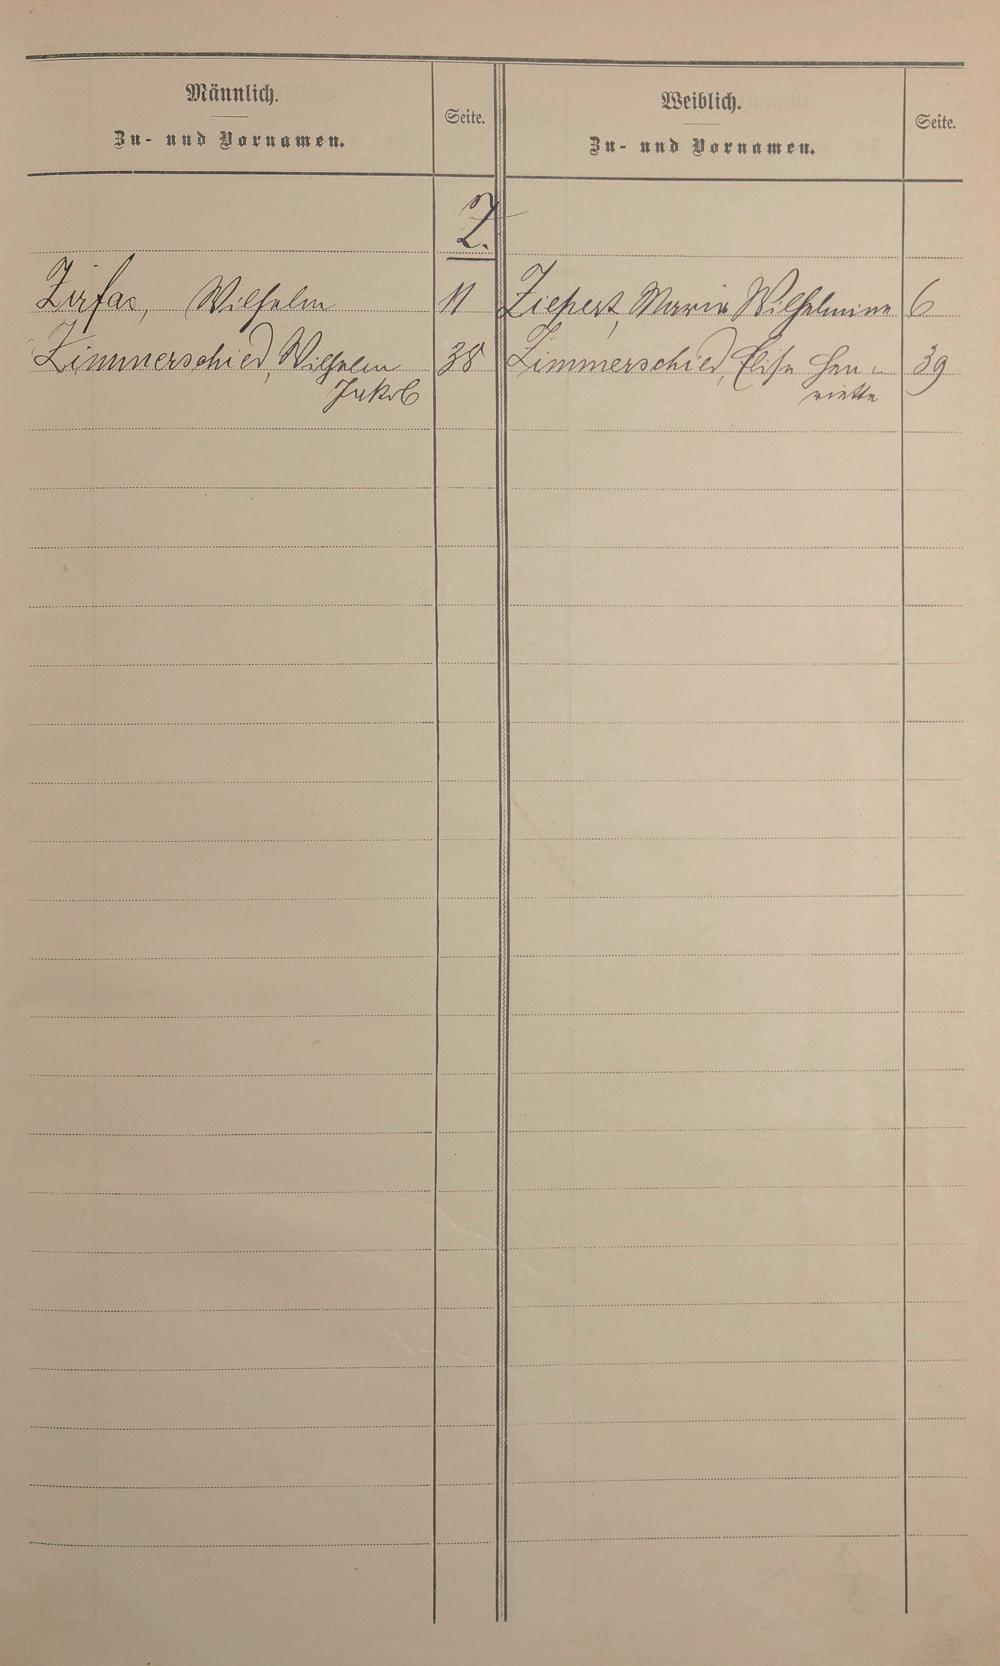 Männlich.
Zu- und Vornamen.
Seite.
Weiblich.
Zu- und Vornamen.
Seite.
Z.
Zirfas, Wilhelm 11
Zimmerschied, Wilhelm 38
Jakob
Ziepert, Maria Wilhelmine 6
Zimmerschied, Elisa Hen- 39
riette